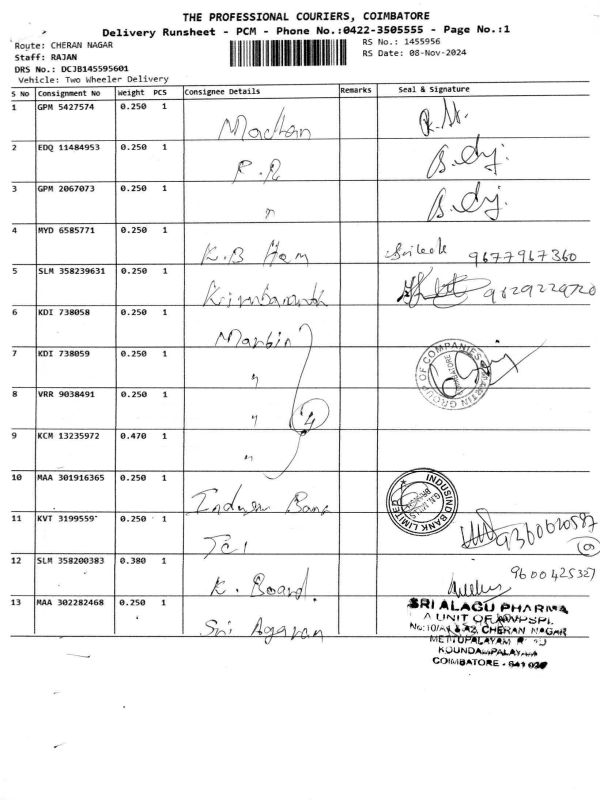 THE PROFESSIONAL COURIERS, COIMBATORE
Delivery Runsheet - PCM - Phone No.:0422-3505555 - Page No.:1
Route: CHERAN NAGAR
RS No.: 1455956
Staff: RAJAN
RS Date: 08-Nov-2024
DRS No.: DCJB145595601
Vehicle: Two Wheeler Delivery
S No Consignment No Weight PCS Consignee Details Remarks Seal & Signature
1 GPM 5427574 0.250 1
2 EDQ 11484953 0.250 1 R.R
3 GPM 2067073 0.250 1 "
4 MYD 6585771 0.250 1 K.B Ham 9677967360
5 SLM 358239631 0.250 1
6 KDI 738058 0.250 1 Martin
7 KDI 738059 0.250 1 "
8 VRR 9038491 0.250 1 " 4
9 KCM 13235972 0.470 1 "
10 MAA 301916365 0.250 1 Indusin Bank
11 KVT 3199559 0.250 1 Tci 9360620587
12 SLM 358200383 0.380 1 K. Board. 9600425327
13 MAA 302282468 0.250 1 Sri Agaran
GROUP OF COMPANIES
INDUSIND BANK LIMITED
SRI ALAGU PHARMA
A UNIT OF
CHERAN NAGAR
METTUPALAYAM
KOUNDAMPALAYAM
COIMBATORE